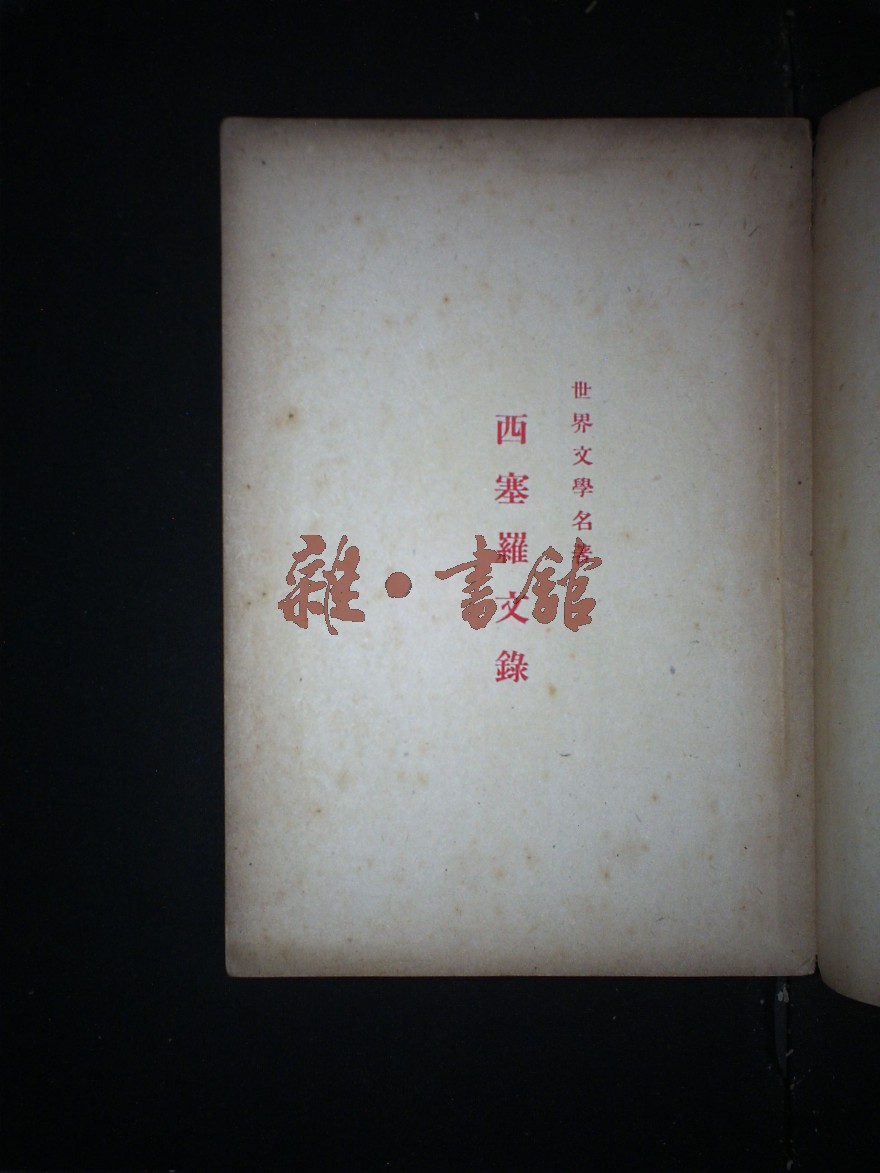 世界文學名著
西塞羅文錄
雜·書館